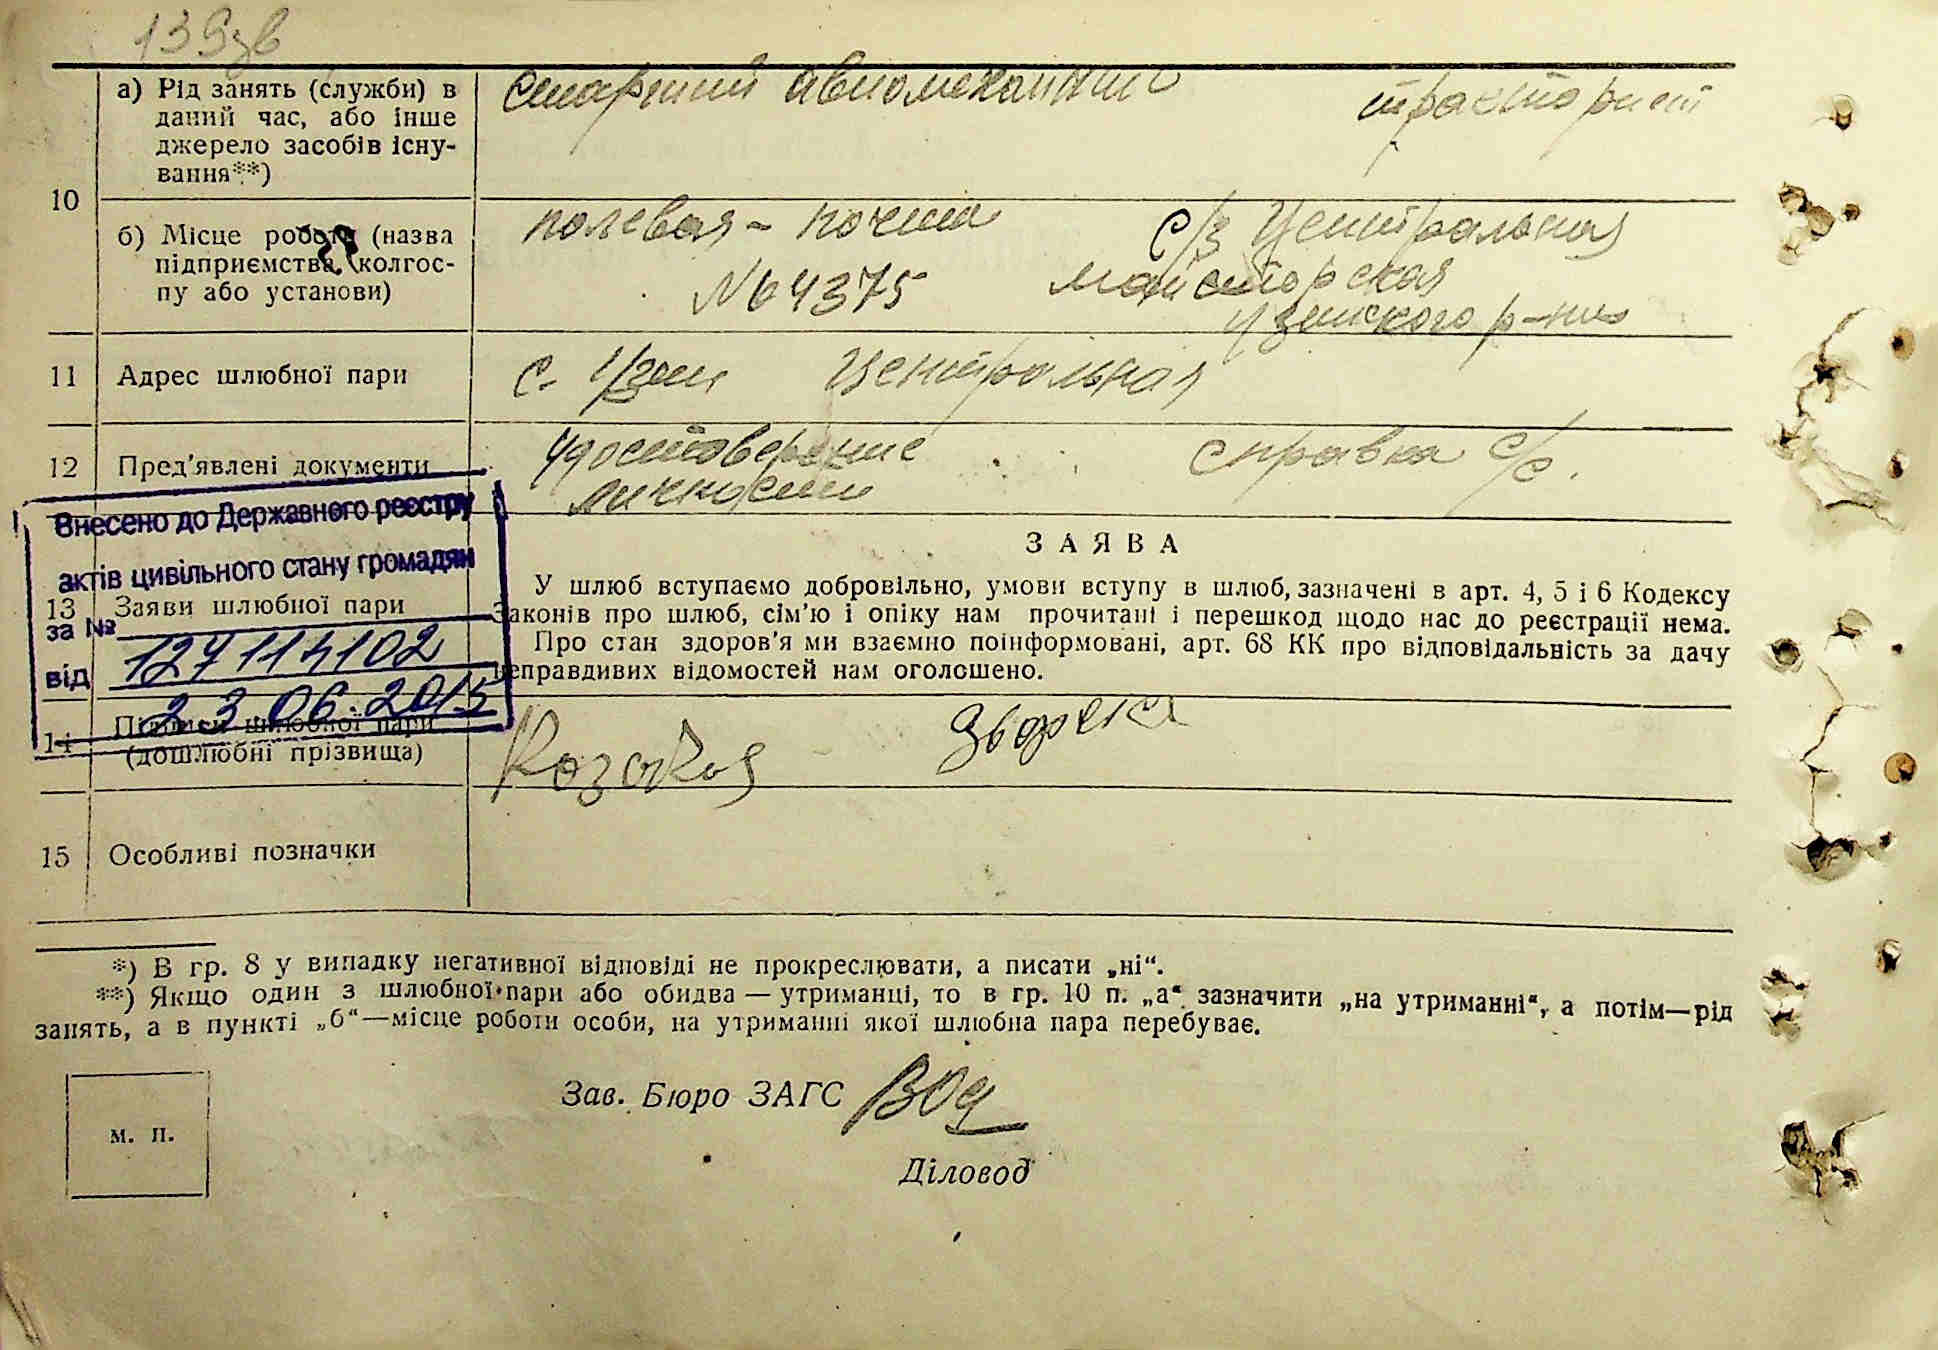 139зв
а) Рід занять (служби) в
даний час, або інше
джерело засобів існу-
вання**)
старший авиомеханик тракторист
10
б) Місце роботи (назва
підприємства, колгос-
пу або установи)
полевая - почта
№ 64375
с/з Центральная
майсторская
р-на
11 Адрес шлюбної пари
с. Центральная
12 Пред'явлені документи
удостоверение
личности
справка с/с.
Внесено до Державного реєстру
актів цивільного стану громадян
за № 127114102
від 23.06.2015
13 Заяви шлюбної пари
ЗАЯВА
У шлюб вступаємо добровільно, умови вступу в шлюб, зазначені в арт. 4, 5 і 6 Кодексу
Законів про шлюб, сім'ю і опіку нам прочитані і перешкод щодо нас до реєстрації нема.
Про стан здоров'я ми взаємно поінформовані, арт. 68 КК про відповідальність за дачу
неправдивих відомостей нам оголошено.
14 Підписи шлюбної пари
(дошлюбні прізвища)
15 Особливі позначки
*) В гр. 8 у випадку негативної відповіді не прокреслювати, а писати „ні“.
**) Якщо один з шлюбної пари або обидва — утриманці, то в гр. 10 п. „а“ зазначити „на утриманні“, а потім—рід
занять, а в пункті „б“—місце роботи особи, на утриманні якої шлюбна пара перебуває.
Зав. Бюро ЗАГС
м. п.
Діловод